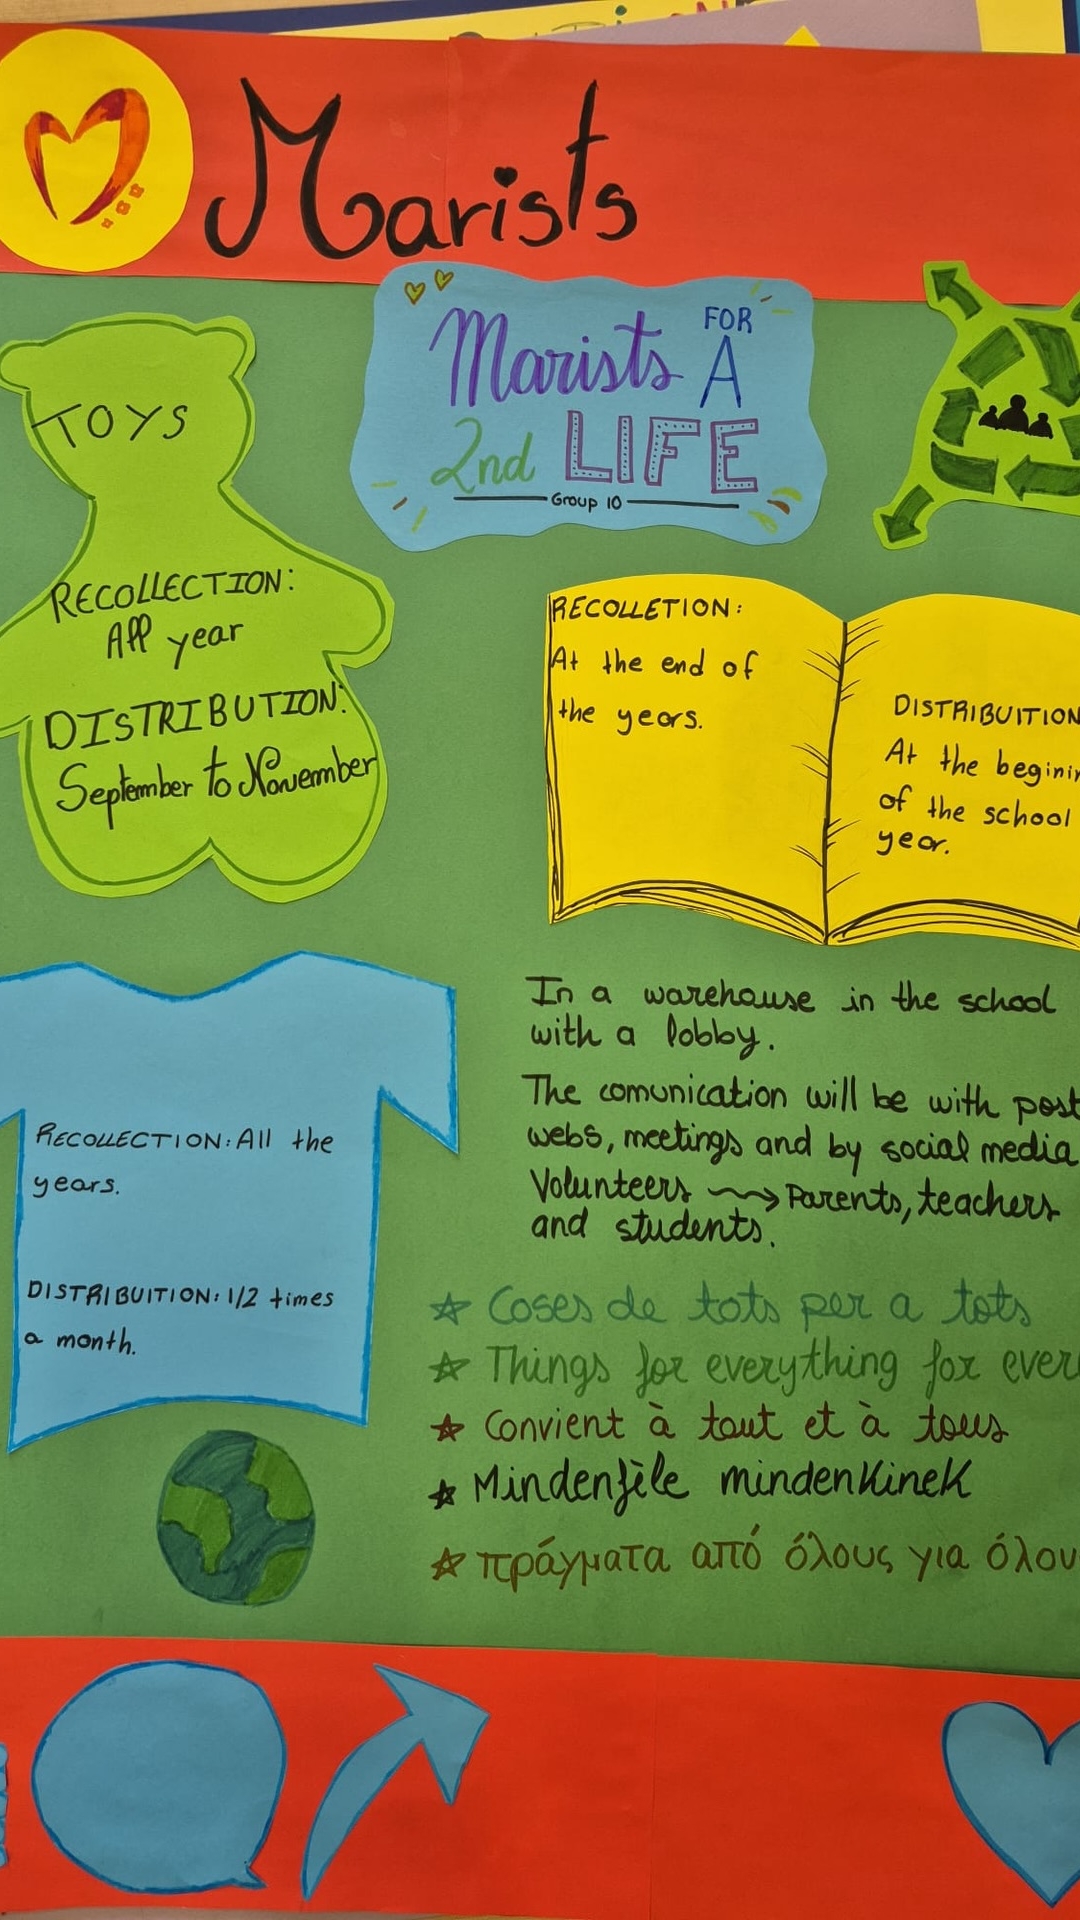 Marists
Marists FOR
A
2nd LIFE
Group 10
TOYS
RECOLLECTION:
All year
DISTRIBUTION:
September to Novermber
RECOLLETION:
At the end of
the years.
DISTRIBUITION
At the
of the school
year.
RECOLLECTION: All the
years.
DISTRIBUITION: 1/2 times
a month.
In a warehause in the school
with a lobby.
The comunication will be with
webs, meetings and by social media
Volunteers → Parents, teachers
and students.
Coses de tots per a tots
Things for everything for
Convient à tout et à tous
Mindenféle mindenkinek
πράγματα από όλους για